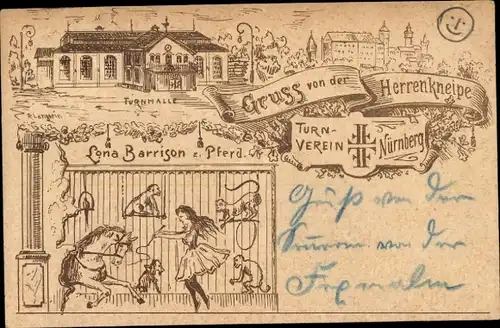 Gruss von der
Herrenkneipe
TURNHALLE
TURN-
VEREIN Nürnberg
Lona Barrison z. Pferd.
Gruß von der
von der